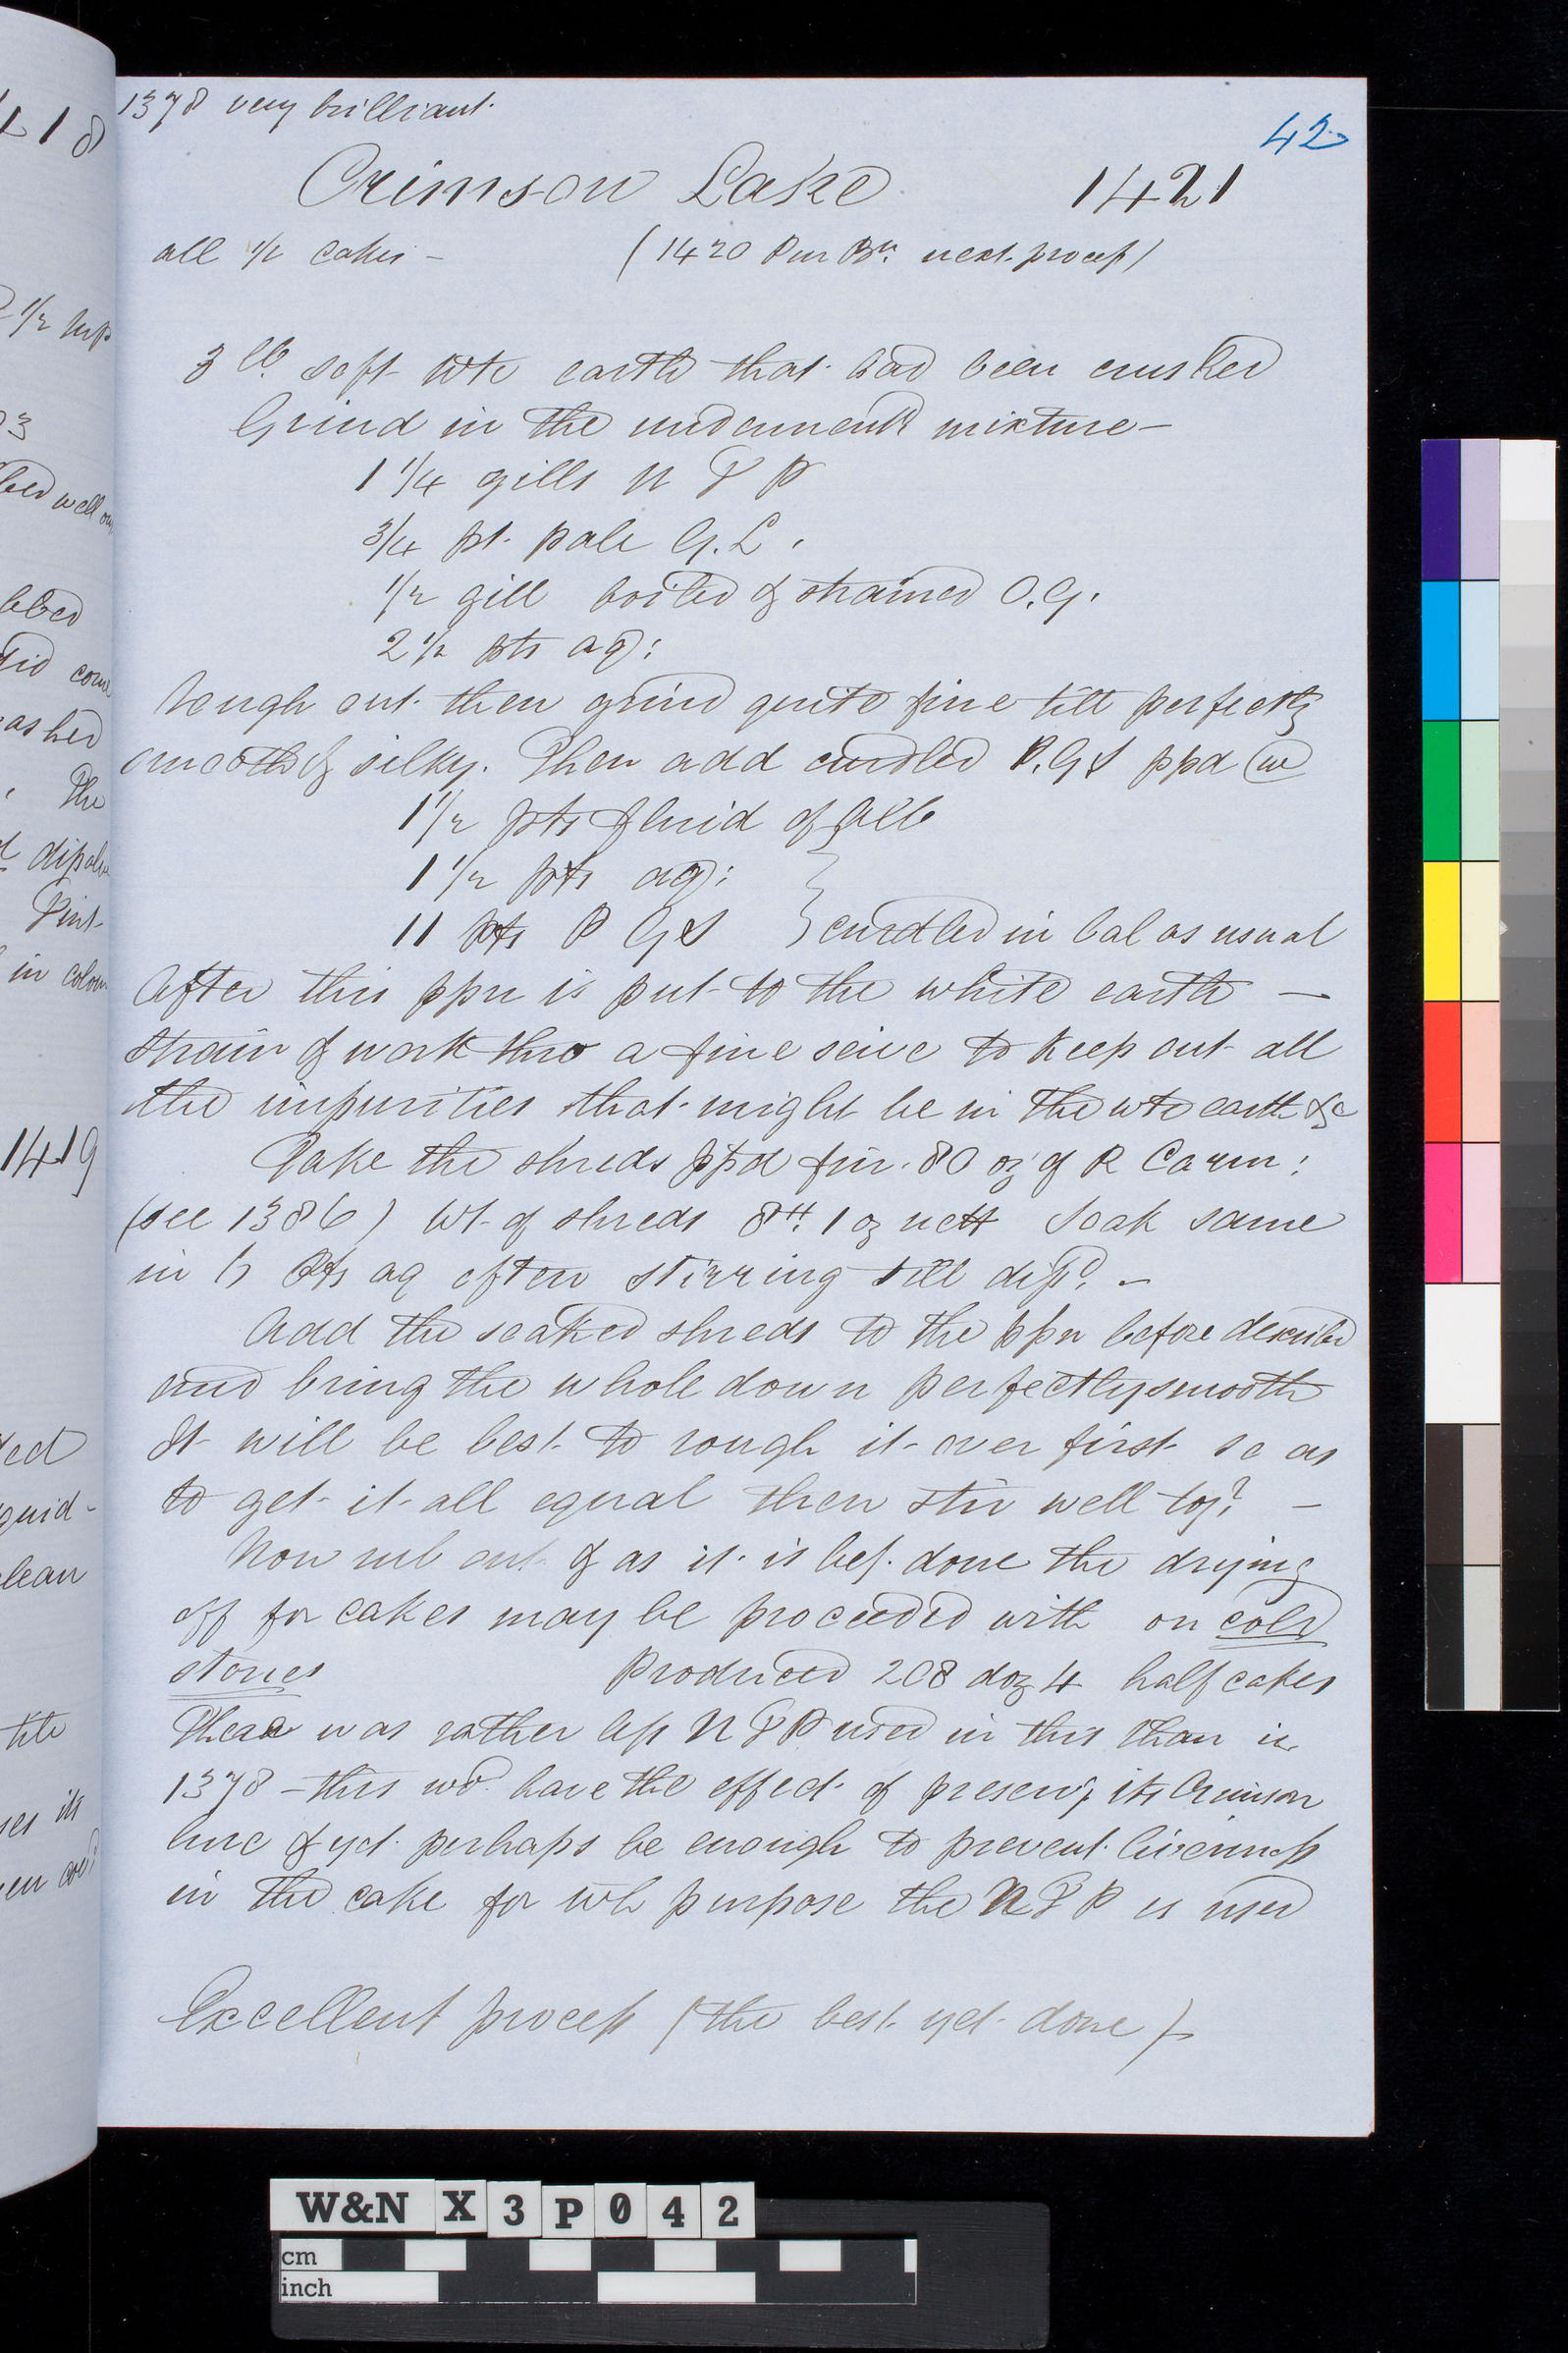 1378 very brilliant.
42
Crimson Lake 1421
all 1/2 cakes - (1420 Pur Br. next process)
3 lb. soft wte earth that had been crushed
Grind in the undermentd mixture -
1 1/4 gills N T P
3/4 pt. pale G.L.
1/2 gill boiled & strained O.G.
2 1/2 pts aq:
rough out then grind quite fine till perfectly
smooth & silky. Then add curdled P.G.S ppd w
1 1/2 pts fluid of Alb
1 1/2 pts aq: }
11 pts P G S } curdled in bal as usual
After this ppn is put to the white earth —
strain & work thro a fine seive to keep out all
the impurities that might be in the wte earth &c
Take the shreds ppd fm. 80 oz of R Carm:
(see 1386) Wt of shreds 8lb. 1 oz nett Soak same
in Pts aq often stirring till dissd. -
Add the soaked shreds to the ppn before described
and bring the whole down perfectly smooth
It will be best to rough it over first so as
to get it all equal then stir well togr —
Now rub out & as it is bef. done the drying
off for cakes may be proceeded with on cold
stones Produced 208 doz 4 half cakes
There was rather less N T P used in this than in
1378 - this wd. have the effect of preservg its Crimson
hue & yet perhaps be enough to prevent liverness
in the cake for wh purpose the N T P is used
Excellent process (the best yet done)
418
1/2 
03
bed well
bbed
did
ashed
The
dissolve
Pint
in colour
1419
ed
quid-
lean
its
W&N X 3 P 0 4 2
cm
inch